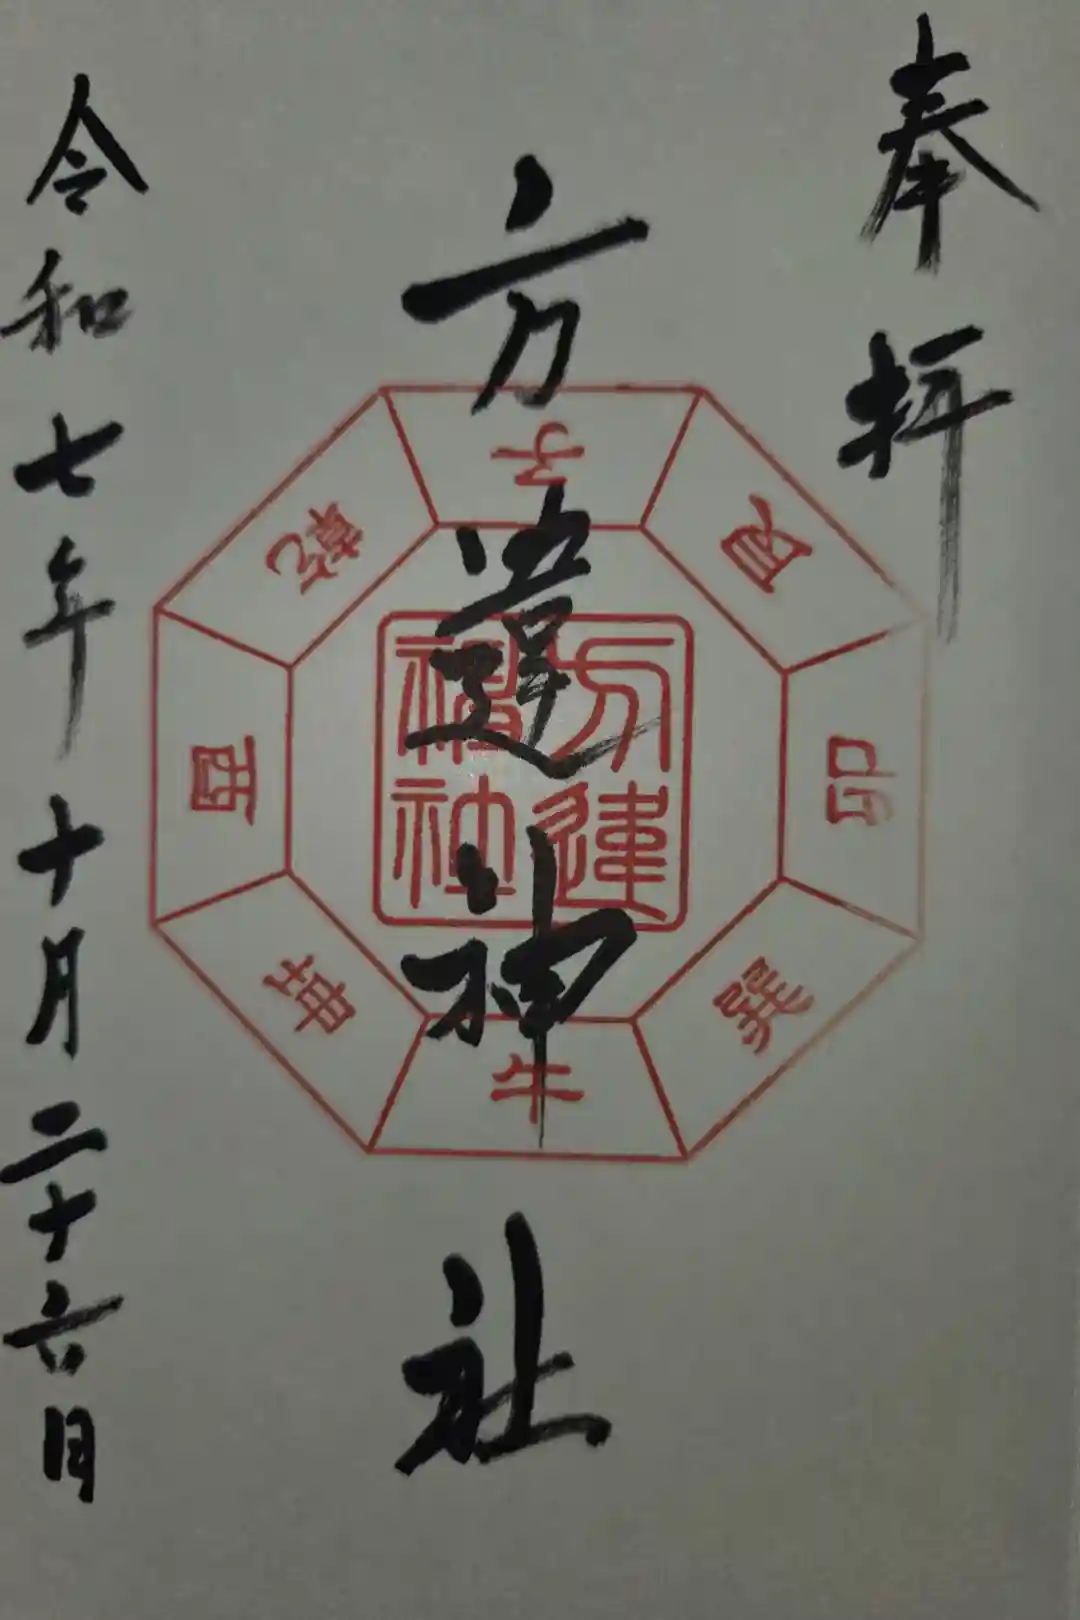 奉拝
方違神社
子
艮
卯
巽
午
坤
酉
乾
方違神社
令和七年十月二十六日